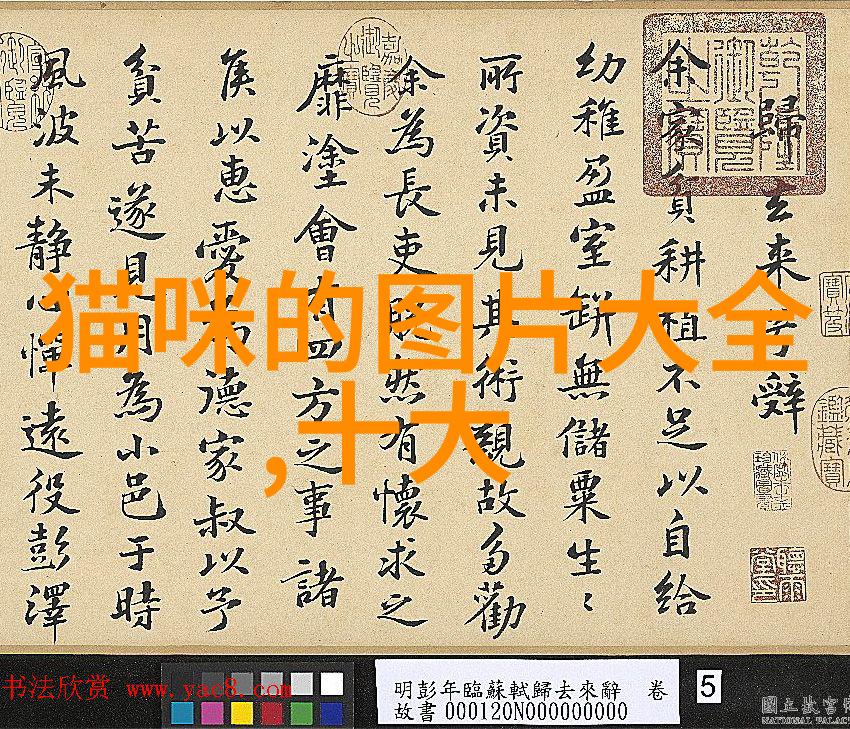 猫咪的图片大全
,十大
歸去來兮辭
余家貧耕植不足以自給
幼稚盈室缾無儲粟生〻
所資未見其術親故多勸
余為長吏脫然有懷求之
靡塗會有四方之事諸
侯以惠愛為德家叔以予
貧苦遂見用為小邑于時
風波未靜心憚遠役彭澤
书法欣赏 www.yac8.com
明彭年臨蘇軾歸去來辭 卷
故書000120N000000000
5
國立故宮博
NATIONAL PALAC